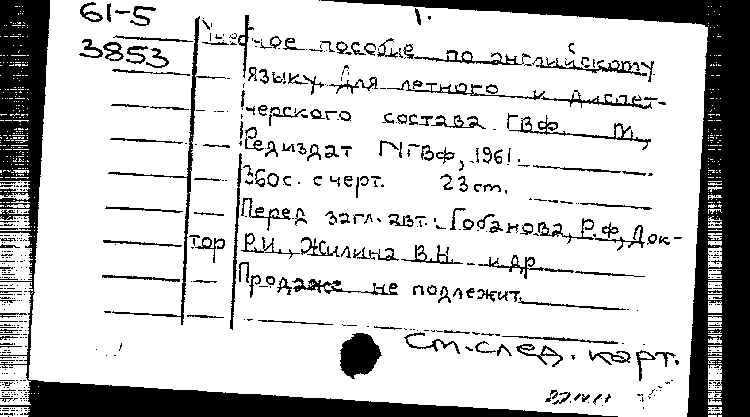 61-5
3853
1.
Учебное пособие по английскому
языку. Для летного и диспет-
черского состава ГВФ. М.,
Редиздат ГУГВФ, 1961.
360с. с черт. 23 см.
Перед загл. авт.: Гобанова, Р.Ф, Док-
тор Р.И., Жилина В.Н. и др.
Продаже не подлежит.
См. след. карт.